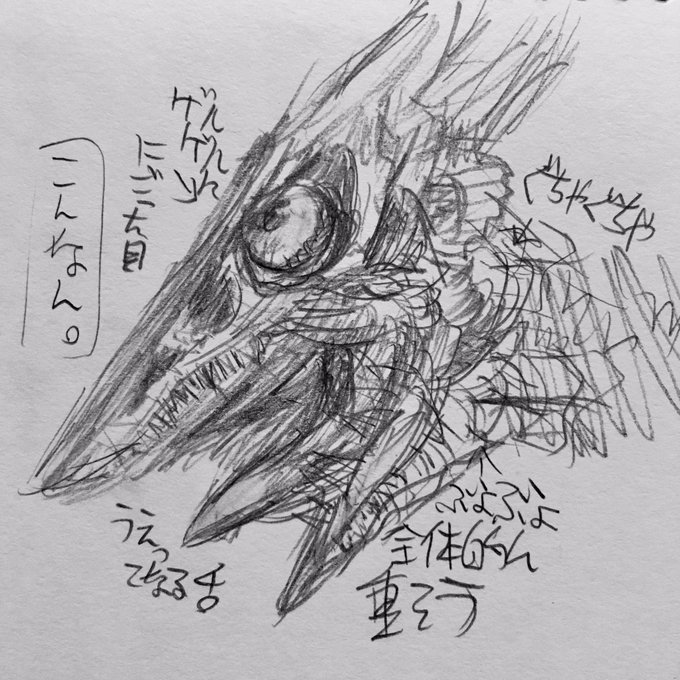 こんなん。
ゲル
ゲルん
にごり
目
ぐちゃぐちゃ
うえっ
てなる舌
↑
ぶよぶよ
全体的ん
重そう